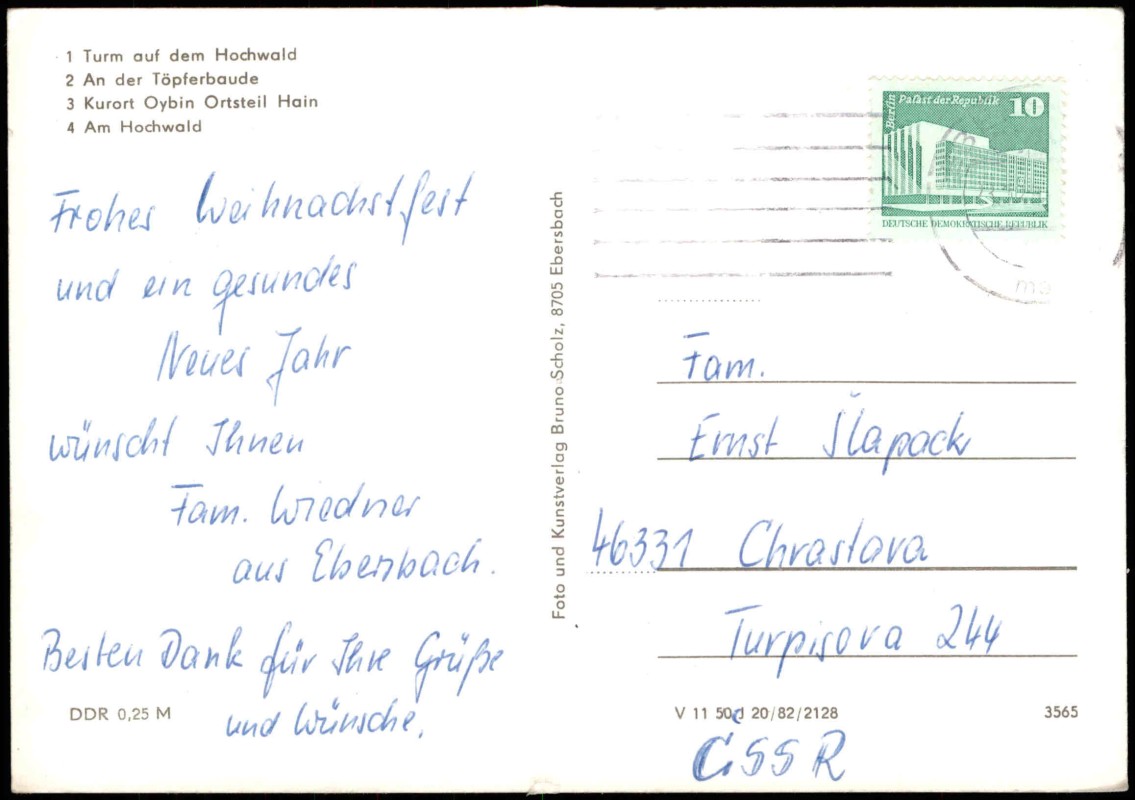 1 Turm auf dem Hochwald
2 An der Töpferbaude
3 Kurort Oybin Ortsteil Hain
4 Am Hochwald
Frohes Weihnachtsfest
und ein gesundes
Neues Jahr
wünscht Ihnen
Fam. Wiedner
aus Ebersbach.
Besten Dank für Ihre Grüße
und Wünsche.
DDR 0,25 M
Foto und Kunstverlag Bruno Scholz, 8705 Ebersbach
Berlin
Palast der Republik
10
DEUTSCHE DEMOKRATISCHE REPUBLIK
Fam.
Ernst Šlapack
46331 Chrastava
Turpisova 244
V 11 50 J 20/82/2128
3565
ČSSR